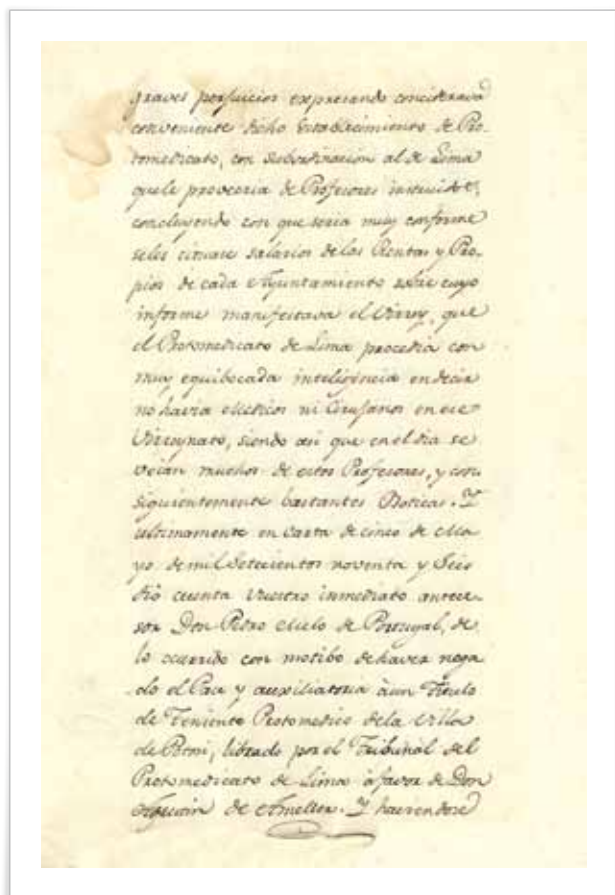 graves perjuicios expresando considerava
conveniente dicho Establecimiento de Pro-
tomedicato, con subordinacion al de Lima
que le proveeria de Profesores instruidos,
concluyendo con que seria muy conforme
seles cituase salarios de las Rentas y Pro-
pios de cada Ayuntamiento sobre cuyo
informe manifestava el Virrey, que
el Protomedicato de Lima procedia con
muy equibocada inteligencia en decir
no havia Medicos ni Cirujanos en ese
Virreynato, siendo asi que en el dia se
veian muchos de estos Profesores, y con
siguientemente bastantes Boticas. Y
ultimamente en Carta de cinco de Ma
yo de mil Setecientos noventa y Seis
dió cuenta vuestro inmediato antece-
sor Don Pedro Melo de Portugal, de
lo ocurrido con motibo de haver nega
do el Pase y auxiliatoria à un Titulo
de Teniente Protomedico de la Villa
de Potosi, librado por el Tribunàl del
Protomedicato de Lima à favor de Don
de Y haviendose